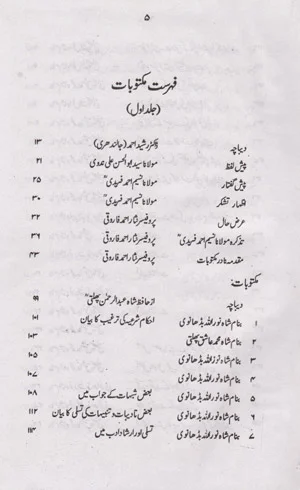 ۵
فہرست مکتوبات
(جلد اول)
دیباچہ ڈاکٹر رشید احمد (جالندھری) ۱۳
پیش لفظ مولانا سید ابوالحسن علی ندوی ۲۱
پیش گفتار مولانا نسیم احمد فریدیؒ ۲۵
اظہار تشکر مولانا نسیم احمد فریدیؒ ۳۰
عرض حال پروفیسر نثار احمد فاروقی ۳۲
تذکرہ مولانا نسیم احمد فریدیؒ پروفیسر نثار احمد فاروقی ۳۶
مقدمہ نادر مکتوبات پروفیسر نثار احمد فاروقی ۴۳
مکتوبات:
دیباچہ از حافظ شاہ عبدالرحمٰن پھلتیؒ ۹۹
۱ بنام شاہ نور اللہ بڈھانوی احکام شرعیہ کی ترغیب کا بیان ۱۰۱
۲ بنام شاہ محمد عاشق پھلتی ۱۰۳
۳ بنام شاہ نور اللہ بڈھانوی ۱۰۵
۴ بنام شاہ نور اللہ بڈھانوی ۱۰۷
۵ بنام شاہ نور اللہ بڈھانوی بعض شبہات کے جواب میں ۱۰۸
۶ بنام شاہ نور اللہ بڈھانوی بعض تادیبات و تنبیہات کی تسلی کا بیان ۱۱۲
۷ بنام شاہ نور اللہ بڈھانوی تسلی اور ارشاد ادب میں ۱۱۳